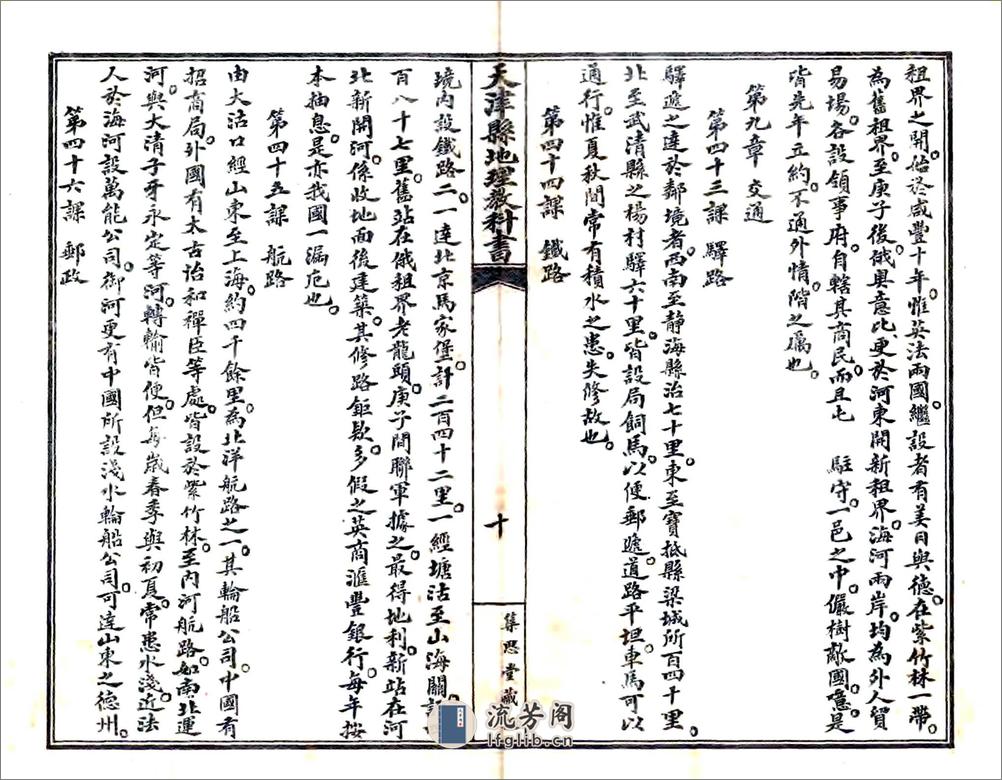 租界之開。始於咸豐十年。惟英法兩國。繼設者有美日與德。在紫竹林一帶。
為舊租界。至庚子後。俄奧意比。更於河東開新租界。海河兩岸。均為外人貿
易場。各設領事府。自轄其商民。而且屯 駐守。一邑之中。儼樹敵國。噫。是
皆先年立約。不通外情。階之厲也。
第九章 交通
第四十三課 驛路
驛遞之達於鄰境者。西南至靜海縣治七十里。東至寶坻縣梁城所百四十里。
北至武清縣之楊村驛六十里。皆設局飼馬。以便郵遞。道路平坦。車馬可以
通行。惟夏秋間常有積水之患。失修故也。
第四十四課 鐵路
境內設鐵路二。一達北京馬家堡。計二百四十二里。一經塘沽至山海關。
百八十七里。舊站在俄租界老龍頭。庚子間聯軍據之。最得地利。新站在河
北新開河。係收地面後建築。其修路鉅款。多假之英商滙豐銀行。每年按
本抽息。是亦我國一漏卮也。
第四十五課 航路
由大沽口經山東至上海。約四千餘里。為北洋航路之一。其輪船公司。中國有
招商局。外國有太古怡和禪臣等處。皆設於紫竹林。至內河航路。如南北運
河。與大清子牙永定等河。轉輸皆便。但每歲春季與初夏。常患水淺。近法
人於海河設萬能公司。御河更有中國所設淺水輪船公司。可達山東之德州。
第四十六課 郵政
天津縣地理教科書
十
集思堂藏
流芳阁
lfglib.cn